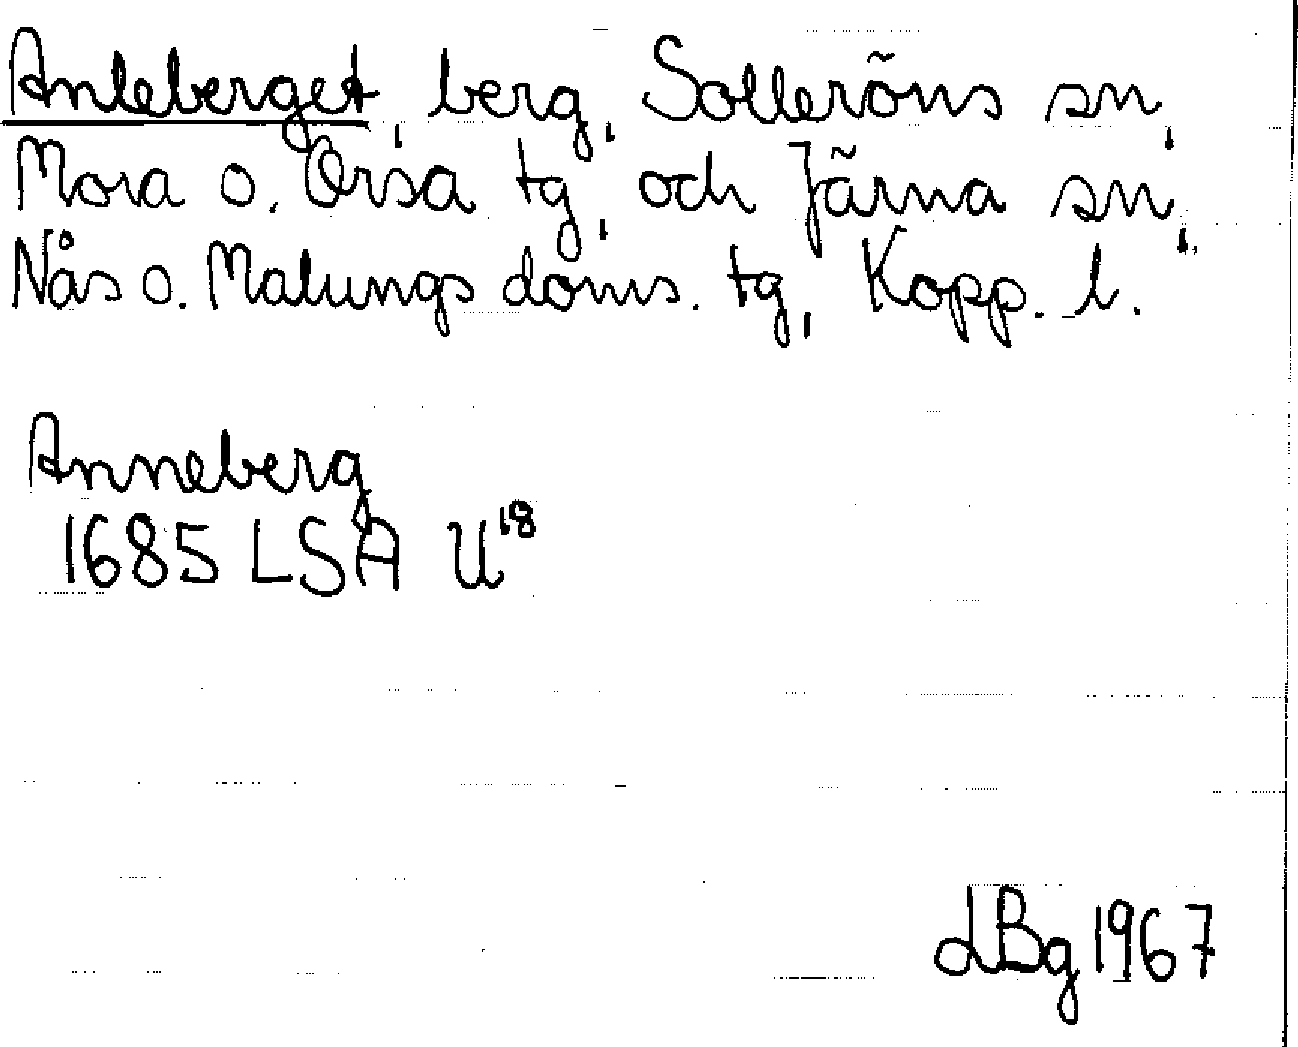 Anleberget, berg, Solleröns sn,
Mora o. Orsa tg, och Järna sn,
Nås o. Malungs doms. tg, Kopp. l.
Anneberg
1685 LSA U18
LBg 1967